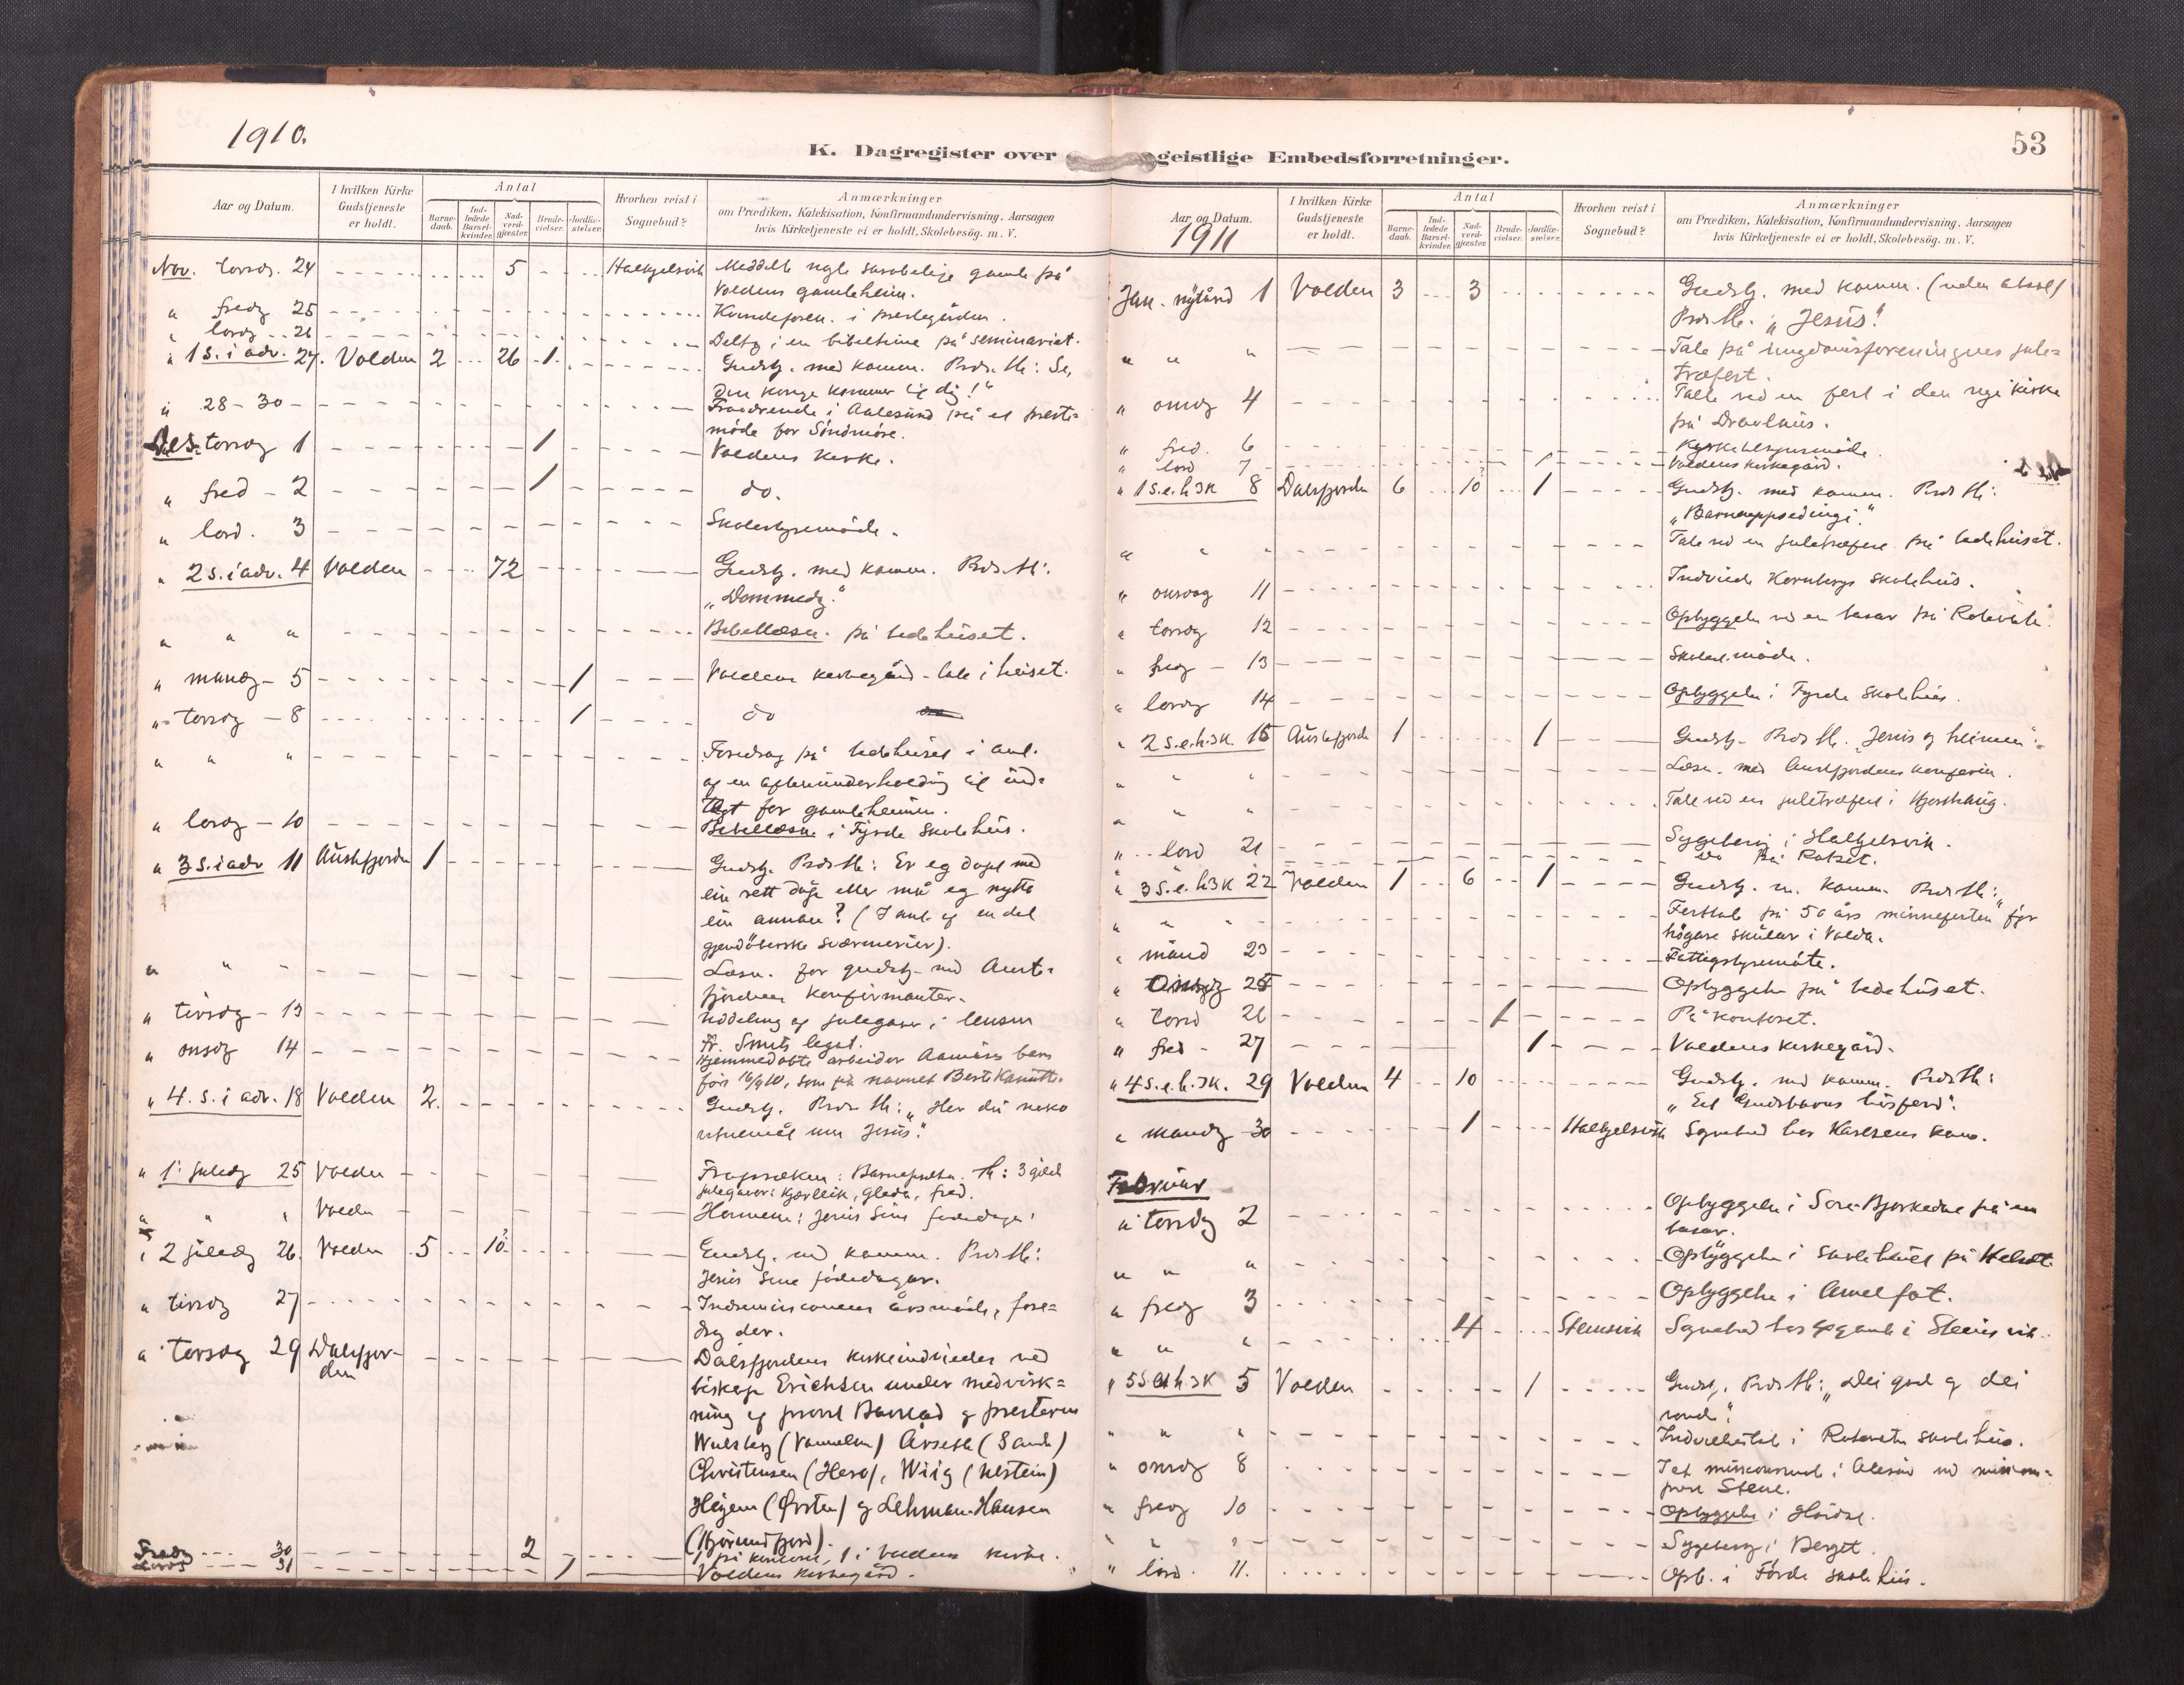 1910.
K. Dagregister over
Aar og Datum.
I hvilken Kirke
Gudstjeneste
er holdt.
Antal
Barne-
daab.
Ind-
ledede
Barsel-
kvinder.
Nad-
verd-
gjæster.
Brude-
vielser.
Jordfæ-
stelser.
Hvorhen reist i
Sognebud?
Anmærkninger
om Prædiken, Katekisation, Konfirmandundervisning, Aarsagen
hvis Kirketjeneste ei er holdt, Skolebesög. m. V.
Nov. torsdg. 24 5 Halkjelsvik Meddelte nogle gamle på
Voldens gamleheim.
" fredg 25 i prestegården.
" lordg 26 Deltog i en bibeltime på seminariet.
" 1 s. i adv. 27. Volden 2 26 1 Gudstj. med komm. Prds. th: Se,
din konge kommer til dig!"
" 28-30 Fraværende i Aalesund på et preste=
möde for Söndmöre.
Des. torsdg 1 1 Voldens kirke.
" fred - 2 1 do.
" lord. 3 Skolestyremöde.
" 2 s. i adv. 4 Volden 72 Gudstj. med komm. Prds. th:
"Dommedg."
" " " Bibellæsn. på bedehuset.
" mandg - 5 1 Voldens kirkegård - tale i huset.
" torsdg - 8 1 do
" " " Foredrag på bedehuset i anl.
af en aftenunderholdning til ind=
tægt for gamleheimen.
" lordg - 10 Bibellæsn i Fyrde skolehus.
" 3 s. i adv 11 Austefjorden 1 Gudstj. Prds. th: Er eg döypt med
ein rett dåp eller må eg nytte
ein annan? (I anl. af en del
gjendöberske sværmerier).
" " " Læsn. for gudstj. med Aust=
fjordens konfirmanter.
" tirsdg - 13 Uddeling af julegaver i
Fr. Smits legat.
" onsdg 14 Hjemmedöbte arbeider Aamås's barn
föd 16/9 10, som fik navnet
" 4. s. i adv. 18 Volden 2. Gudstj. Prds. th: "Hev du noko
um Jesus."
" 1. juledg 25 Volden Fropreken: th: 3
julegaver: kjærleik, glede, fred.
" " " Volden Jesus sine
" 2 juledg 26. Volden 5 10? Gudstj. med komm. Prds. th:
Jesus sine födedagar.
" tirsdg 27 Indremissionens årsmöde, fore=
drg der.
" torsdg 29 Dalsfjor-
den Dalsfjordens kirke indviedes ved
biskop Erichsen under medvirk=
ning af provst Barstad og presterne
Wulsberg (Vannelven) Årseth (Sande)
Christensen (Herø), Wiig (Ulstein)
Heigem (Ørsten) og Lehman-Hansen
(Hjörundfjord).
Fredg 30 2 1 på kontoret, 1 i Voldens kirke.
Lordg 31 1 Voldens kirkegård.
53
geistlige Embedsforretninger.
Aar og Datum.
1911
I hvilken Kirke
Gudstjeneste
er holdt.
Antal
Barne-
daab.
Ind-
ledede
Barsel-
kvinder.
Nad-
verd-
gjæster.
Brude-
vielser.
Jordfæ-
stelser.
Hvorhen reist i
Sognebud?
Anmærkninger
om Prædiken, Katekisation, Konfirmandundervisning, Aarsagen
hvis Kirketjeneste ei er holdt, Skolebesög. m. V.
Jan. nytårsd 1 Volden 3 3 Gudstj. med komm. (uden absol)
Prds. th. "Jesus".
" " " Tale på ungdomsforeningens jule=
træfest.
" onsdg 4 Tale ved en fest i den nye kirke
på Dravlaus.
" fred. 6 Kirketilsynsmöde.
" lord 7 1 Voldens kirkegård.
" 1 s.e.h3k 8 Dalsfjorden 6 10? 1 Gudstj. med komm. Prds th:
"Barneuppsedingi."
" " " Tale ved en juletræfest på bedehuset.
" onsdag 11 Indviede Kornbergs skolehus.
" torsdg 12 Opbyggelse ved en basar på Rotevatn.
" fredg - 13 Skolest.möde.
" lordg 14 Opbyggelse i Fyrde skolehus.
" 2 s.e.h.3k. 15 Austefjorden 1 1 Gudstj. Prds th. "Jesus og heimen".
" " " Læsn. med Austfjordens konfirm.
" " " Tale ved en juletræfest i Hjorthaug.
" lord 21 Sygebesög i Halkjelsvik.
do på Rotset.
" 3 s.e.h3k 22 Volden 1 6 1 Gudstj. m. komm. Prds th:
" " " Festtale på 50 års minnefesten fyr
högare skular i Volda.
" mand 23 Fattigstyremöte.
" Onsdg 25 Opbyggelse på bedehuset.
" torsd 26 1 På kontoret.
" fred - 27 1 Voldens kirkegård.
" 4 s.e.h.3k. 29 Volden 4 10 Gudstj. med komm. Prds th:
"Eit Gudsbarns
" mandg 30 1 Halkjelsvik Sognebud hos Karlsens kone.
Februar
" torsdg 2 Opbyggelse i Söre-Bjørkedal på en
basar.
" " " Opbyggelse i skolehuset på
" fredg 3 Opbyggelse i Amelfot.
" " " 4 Steinsvik Sognebud hos gamle i Steinsvik.
" 5 s e h 3k 5 Volden 1 Gudstj. Prds th: "Dei gode og dei
vonde".
" " " Indvielsestale i Rotevatn skolehus.
" onsdg 8 I et missionsmöde i Ålesund med mission=
prest Stene.
" fredg 10 Opbyggelse i
" " " Sygebesög i Berget.
" lörd. 11. Opb. i Förde skolehus.